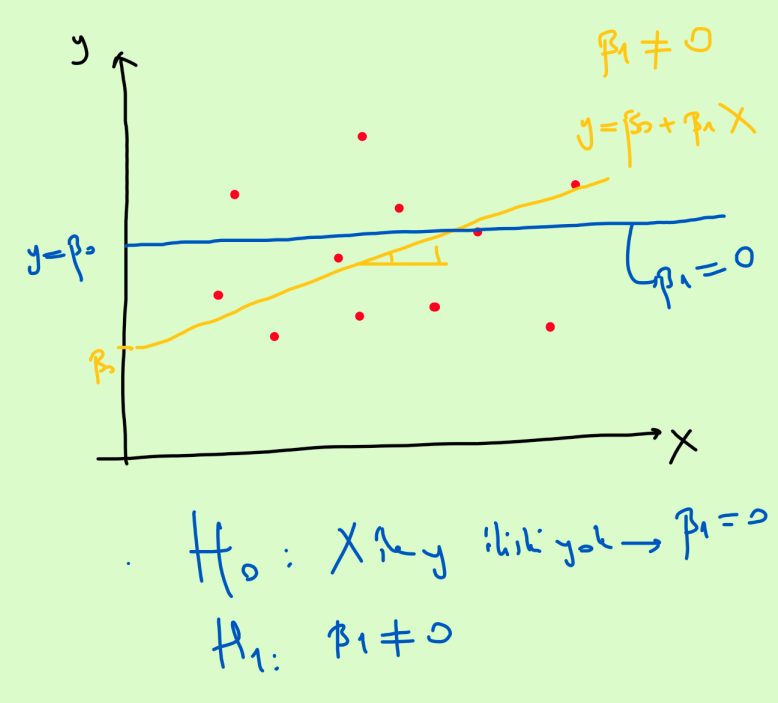 y
β1 ≠ 0
y = β0 + β1 X
y = β0
β1 = 0
β0
X
H0 : X ile y ilişki yok → β1 = 0
H1 : β1 ≠ 0